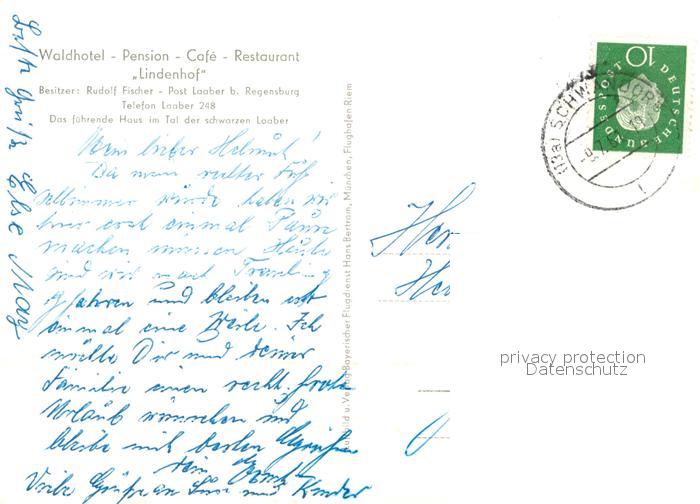 Waldhotel - Pension - Café - Restaurant
„Lindenhof"
Besitzer: Rudolf Fischer - Post Laaber b. Regensburg
Telefon Laaber 248
Das führende Haus im Tal der schwarzen Laaber
Mein lieber Helmut!
Da mein rechter Fuß
schlimmer wurde haben wir
hier erst einmal Pause
machen müssen Heute
sind wir nach
gefahren und bleiben erst
einmal eine Weile. Ich
möchte Dir und deiner
Familie einen recht frohen
Urlaub wünschen und
bleibe mit besten Grüßen
dein
Viele Grüße an und Kinder
Else May
Luftbild u. Verlag Bayerischer Flugdienst Hans Bertram, München, Flughafen Riem
DEUTSCHE BUNDESPOST
10
(13a) SCHWANDORF
Her
Her
privacy protection
Datenschutz